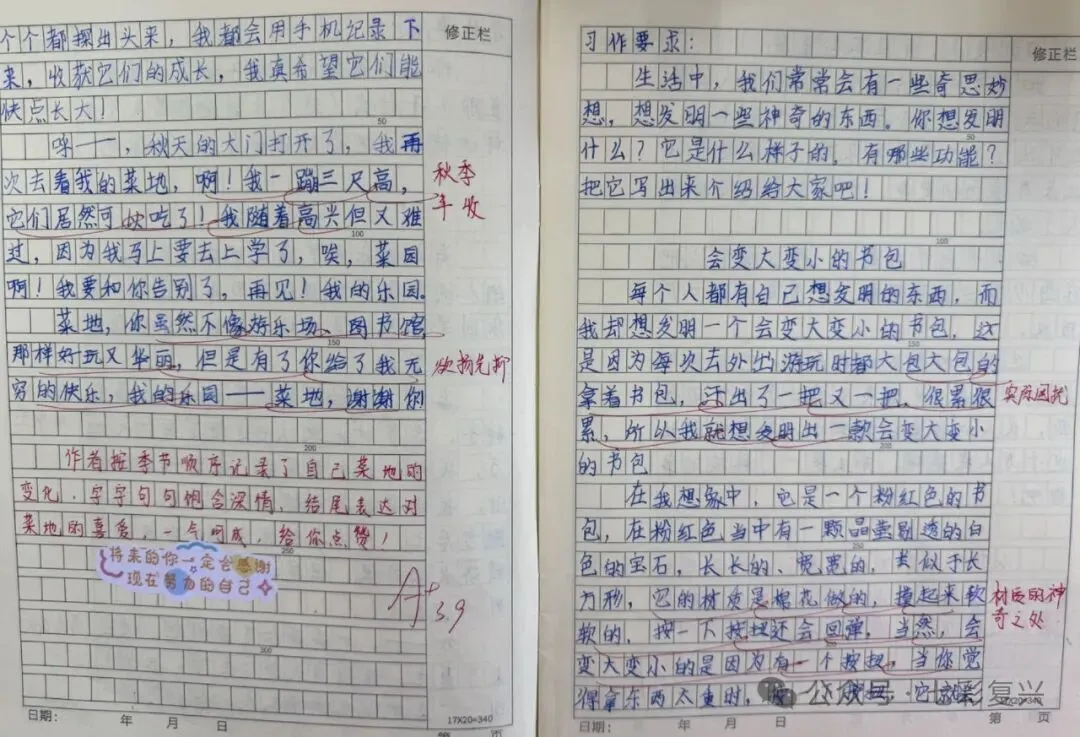 个个都探出头来，我都会用手机纪录下
来，收获它们的成长，我真希望它们能
快点长大！
呼——，秋天的大门打开了，我再
次去看我的菜地，啊！我一蹦三尺高，
它们居然可以吃了！我随着高兴但又难
过，因为我马上要去上学了，唉，菜园
啊！我要和你告别了，再见！我的乐园。
菜地，你虽然不像游乐场、图书馆
那样好玩又华丽，但是有了你给了我无
穷的快乐，我的乐园——菜地，谢谢你
作者按季节顺序记录了自己菜地的
变化，字字句句饱含深情，结尾表达对
菜地的喜爱，一气呵成，给你点赞！
将来的你一定会感谢
现在努力的自己
A+
3.9
修正栏
秋季
丰收
欲扬先抑
50
100
150
200
250
300
日期： 年 月 日
17X20=340
第 页
习作要求：
生活中，我们常常会有一些奇思妙
想，想发明一些神奇的东西。你想发明
什么？它是什么样子的，有哪些功能？
把它写出来介绍给大家吧！
会变大变小的书包
每个人都有自己想发明的东西，而
我却想发明一个会变大变小的书包，这
是因为每次去外出游玩时都大包大包的
拿着书包，汗出了一把又一把，很累很
累，所以我就想发明出一款会变大变小
的书包
在我想象中，它是一个粉红色的书
包，在粉红色当中有一颗晶莹剔透的白
色的宝石，长长的、宽宽的，类似于长
方形，它的材质是棉花做的，摸起来软
软的，按一下按钮还会回弹，当然，会
变大变小的是因为有一个按钮，当你觉
得拿东西太重时，它就
修正栏
实际困扰
材质的神
奇之处
50
100
150
200
250
公众号·七彩复兴
日期： 年 月 日
第 页